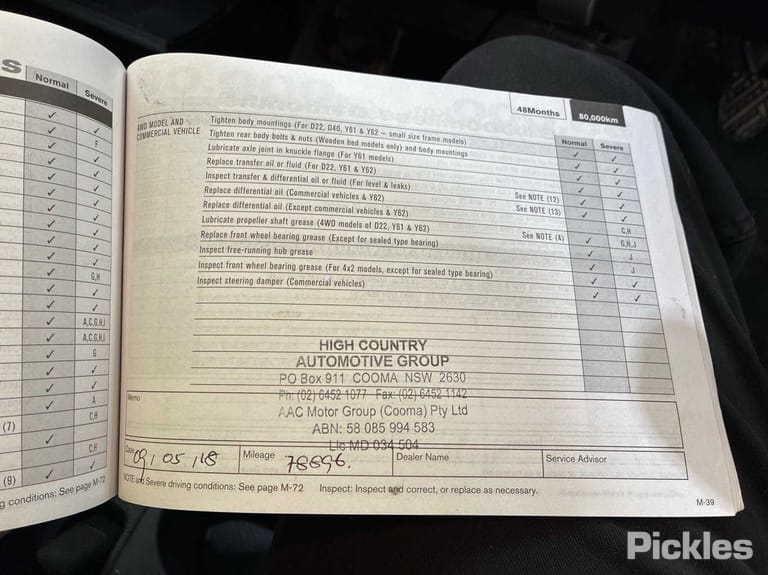 S
Normal Severe
✓ ✓
✓ F
✓ ✓
✓ ✓
✓ ✓
✓ ✓
✓ ✓
✓ ✓
✓ ✓
✓ ✓
✓ G,H
✓ ✓
✓ ✓
✓ A,C,G,H,I
✓ A,C,G,H,I
✓ G
✓ ✓
✓ ✓
✓ A
C,H
(7) ✓ ✓
C,H
(9) ✓ ✓
g conditions: See page M-72
48Months 80,000km
Normal Severe
4WD MODEL AND
COMMERCIAL VEHICLE
Tighten body mountings (For D22, D40, Y61 & Y62 – small size frame models) ✓ ✓
Tighten rear body bolts & nuts (Wooden bed models only) and body mountings ✓ ✓
Lubricate axle joint in knuckle flange (For Y61 models) ✓ ✓
Replace transfer oil or fluid (For D22, Y61 & Y62) ✓ ✓
Inspect transfer & differential oil or fluid (For level & leaks) ✓ ✓
Replace differential oil (Commercial vehicles & Y62) See NOTE (12) ✓ C,H
Replace differential oil (Except commercial vehicles & Y62) See NOTE (13) ✓ G,H,J
Lubricate propeller shaft grease (4WD models of D22, Y61 & Y62) See NOTE (4) ✓ J
Replace front wheel bearing grease (Except for sealed type bearing) ✓ J
Inspect free-running hub grease ✓ ✓
Inspect front wheel bearing grease (For 4x2 models, except for sealed type bearing) ✓ ✓
Inspect steering damper (Commercial vehicles) ✓ ✓
HIGH COUNTRY
AUTOMOTIVE GROUP
PO Box 911 COOMA NSW 2630
Memo
Ph: (02) 6452 1077 Fax: (02) 6452 1142
AAC Motor Group (Cooma) Pty Ltd
ABN: 58 085 994 583
Lic MD 034 504
Date 09, 05, 18 Mileage 78896. Dealer Name Service Advisor
NOTE and Severe driving conditions: See page M-72 Inspect: Inspect and correct, or replace as necessary.
M-39
Pickles